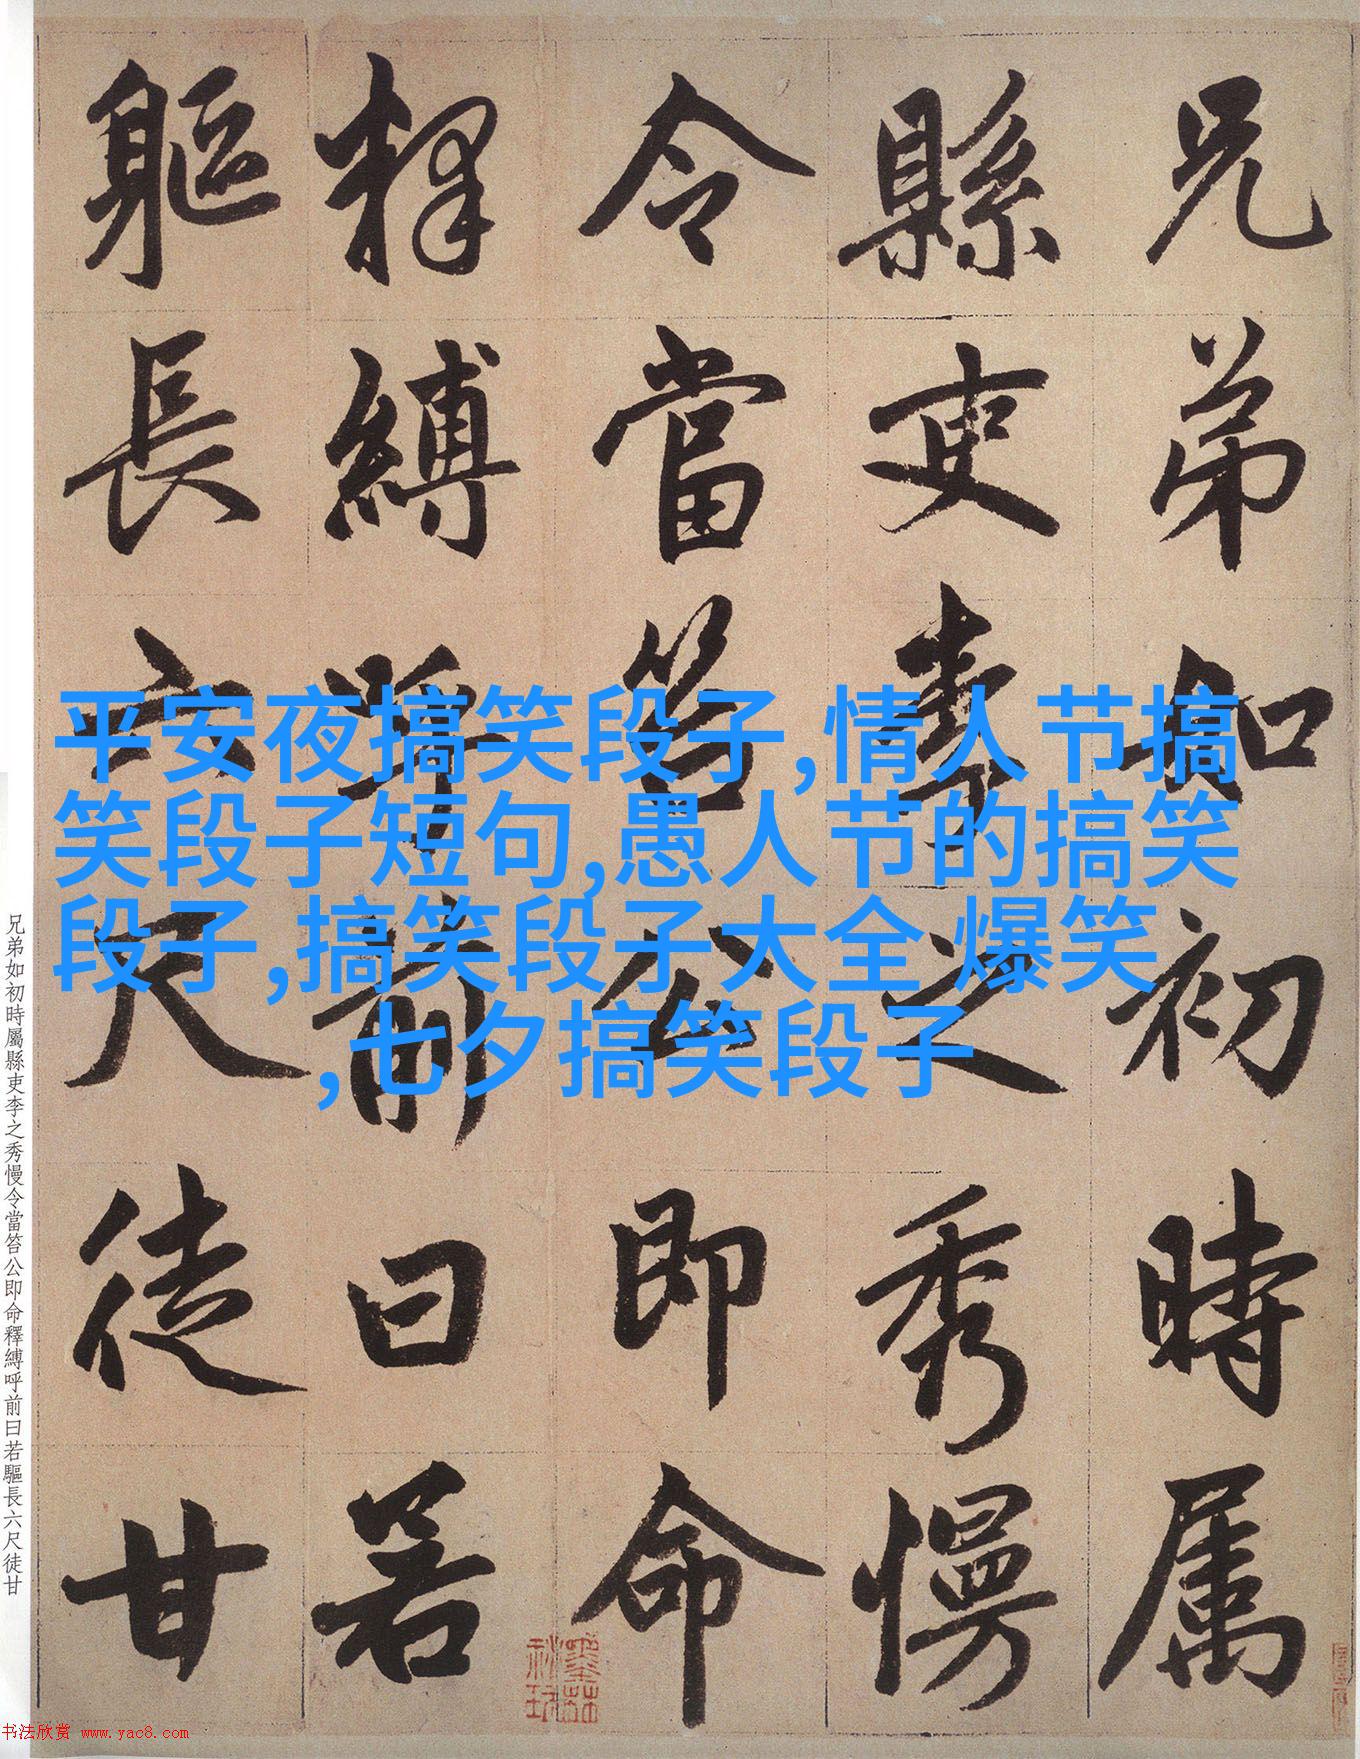 兄弟如初時属
縣吏李之秀慢
令當笞公即命
釋縛呼前曰若
軀長六尺徒甘
平安夜搞笑段子,情人节搞
笑段子短句,愚人节的搞笑
段子,搞笑段子大全 爆笑
,七夕搞笑段子
兄弟如初時屬縣吏李之秀慢令當笞公即命釋縛呼前曰若驅長六尺徒甘
书法欣赏 www.yac8.com